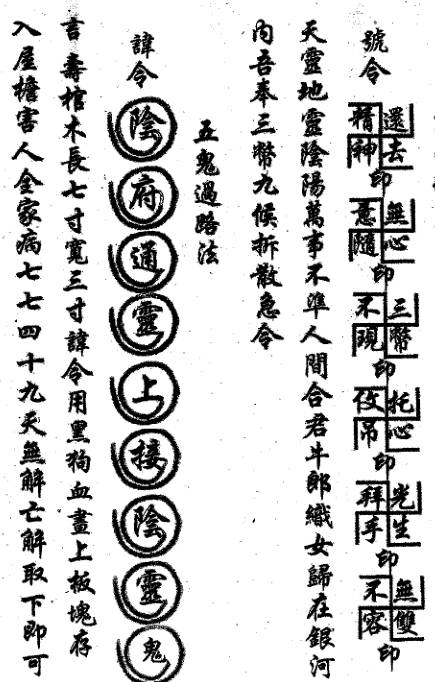 號令
還去精神印
無心意隨印
三幣不現印
托心佼吊印
光生拜手印
無雙不容印
天靈地靈陰陽萬事不準人間合君牛郎織女歸在銀河
內吾奉三幣九候拆散急令
五鬼過路法
諱令
陰府通靈上接陰靈鬼
言壽棺木長七寸寬三寸諱令用黑狗血畫上板塊存
入屋檐害人全家病七七四十九天無解亡解取下即可